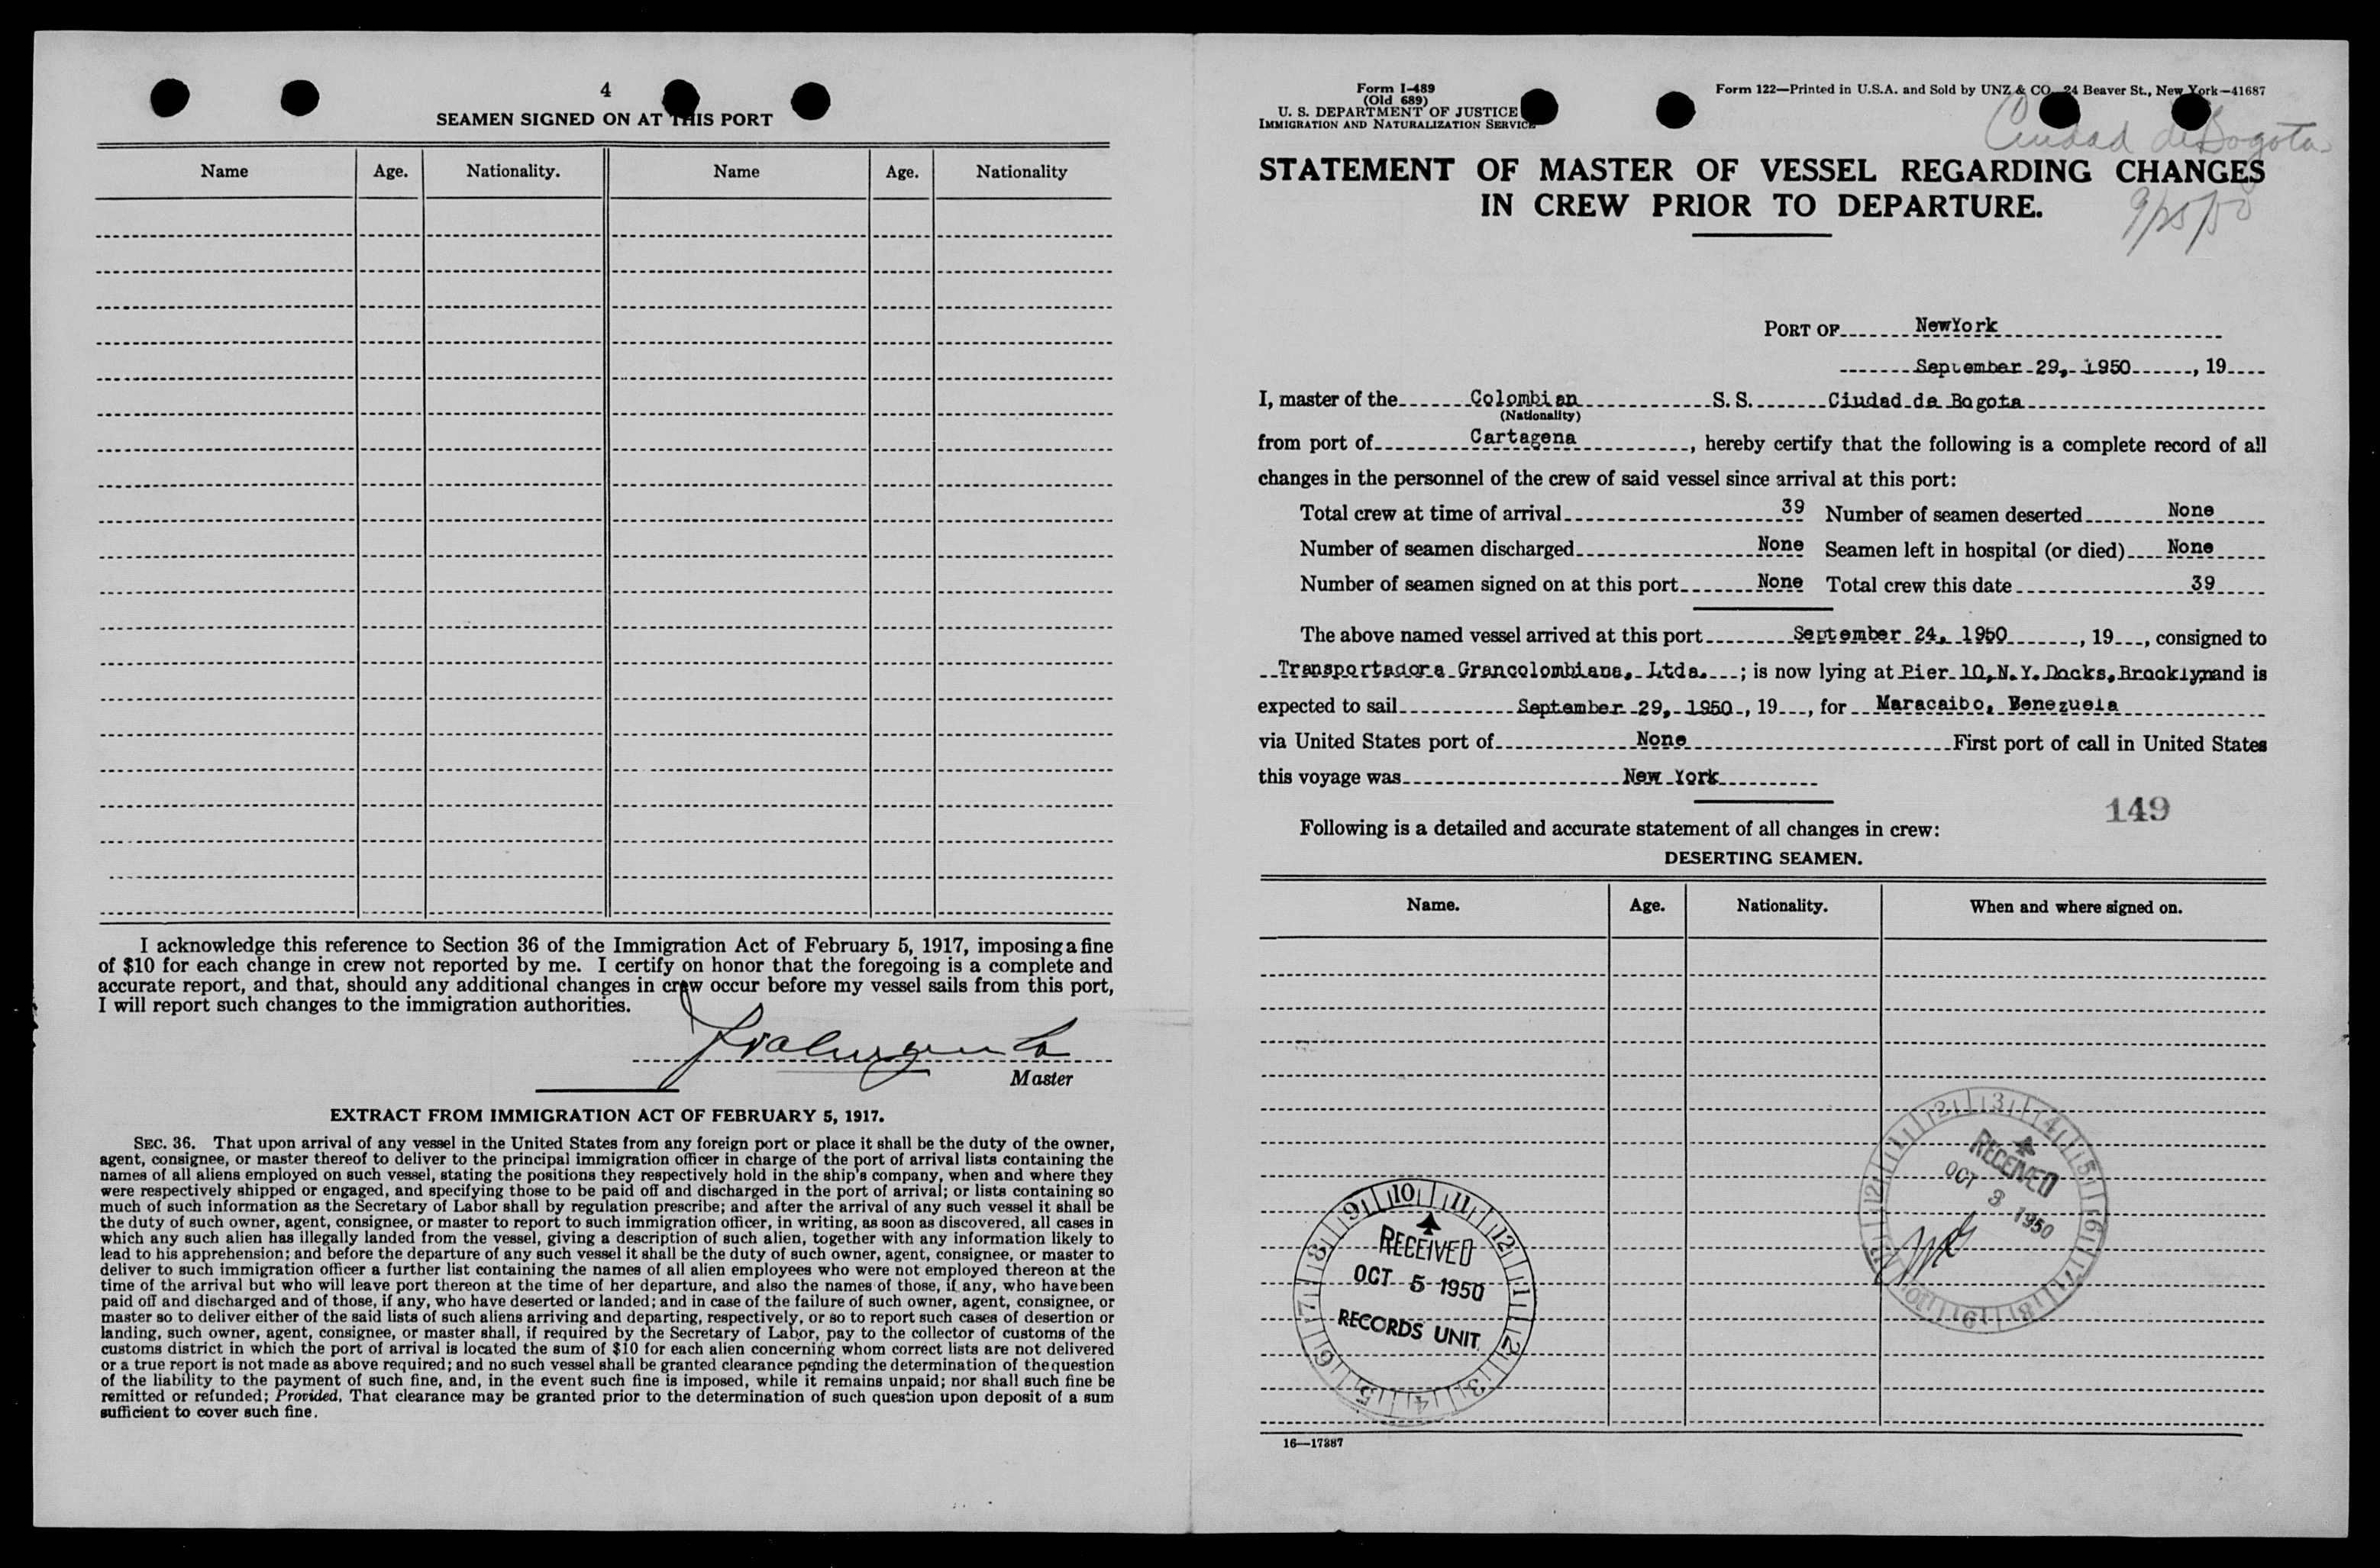 4
SEAMEN SIGNED ON AT THIS PORT
Name Age. Nationality. Name Age. Nationality
I acknowledge this reference to Section 36 of the Immigration Act of February 5, 1917, imposing a fine
of $10 for each change in crew not reported by me. I certify on honor that the foregoing is a complete and
accurate report, and that, should any additional changes in crew occur before my vessel sails from this port,
I will report such changes to the immigration authorities.
Master
EXTRACT FROM IMMIGRATION ACT OF FEBRUARY 5, 1917.
SEC. 36. That upon arrival of any vessel in the United States from any foreign port or place it shall be the duty of the owner,
agent, consignee, or master thereof to deliver to the principal immigration officer in charge of the port of arrival lists containing the
names of all aliens employed on such vessel, stating the positions they respectively hold in the ship's company, when and where they
were respectively shipped or engaged, and specifying those to be paid off and discharged in the port of arrival; or lists containing so
much of such information as the Secretary of Labor shall by regulation prescribe; and after the arrival of any such vessel it shall be
the duty of such owner, agent, consignee, or master to report to such immigration officer, in writing, as soon as discovered, all cases in
which any such alien has illegally landed from the vessel, giving a description of such alien, together with any information likely to
lead to his apprehension; and before the departure of any such vessel it shall be the duty of such owner, agent, consignee, or master to
deliver to such immigration officer a further list containing the names of all alien employees who were not employed thereon at the
time of the arrival but who will leave port thereon at the time of her departure, and also the names of those, if any, who have been
paid off and discharged and of those, if any, who have deserted or landed; and in case of the failure of such owner, agent, consignee, or
master so to deliver either of the said lists of such aliens arriving and departing, respectively, or so to report such cases of desertion or
landing, such owner, agent, consignee, or master shall, if required by the Secretary of Labor, pay to the collector of customs of the
customs district in which the port of arrival is located the sum of $10 for each alien concerning whom correct lists are not delivered
or a true report is not made as above required; and no such vessel shall be granted clearance pending the determination of the question
of the liability to the payment of such fine, and, in the event such fine is imposed, while it remains unpaid; nor shall such fine be
remitted or refunded; Provided, That clearance may be granted prior to the determination of such question upon deposit of a sum
sufficient to cover such fine.
Form I-489
(Old 689)
U. S. DEPARTMENT OF JUSTICE
IMMIGRATION AND NATURALIZATION SERVICE
Form 122—Printed in U.S.A. and Sold by UNZ & CO. 24 Beaver St., New York—41687
Ciudad de Bogota
STATEMENT OF MASTER OF VESSEL REGARDING CHANGES
IN CREW PRIOR TO DEPARTURE.
9/25/50
PORT OF NewYork
September 29, 1950, 19
I, master of the Colombian S. S. Ciudad de Bogota
(Nationality)
from port of Cartagena, hereby certify that the following is a complete record of all
changes in the personnel of the crew of said vessel since arrival at this port:
Total crew at time of arrival 39 Number of seamen deserted None
Number of seamen discharged None Seamen left in hospital (or died) None
Number of seamen signed on at this port None Total crew this date 39
The above named vessel arrived at this port September 24, 1950, 19, consigned to
Transportadora Grancolombiana, Ltda.; is now lying at Pier 10, N.Y. Docks, Brooklyn and is
expected to sail September 29, 1950, 19, for Maracaibo, Venezuela
via United States port of None First port of call in United States
this voyage was New York
149
Following is a detailed and accurate statement of all changes in crew:
DESERTING SEAMEN.
Name. Age. Nationality. When and where signed on.
RECEIVED
OCT 3 1950
RECEIVED
OCT 5 1950
RECORDS UNIT
16—17887